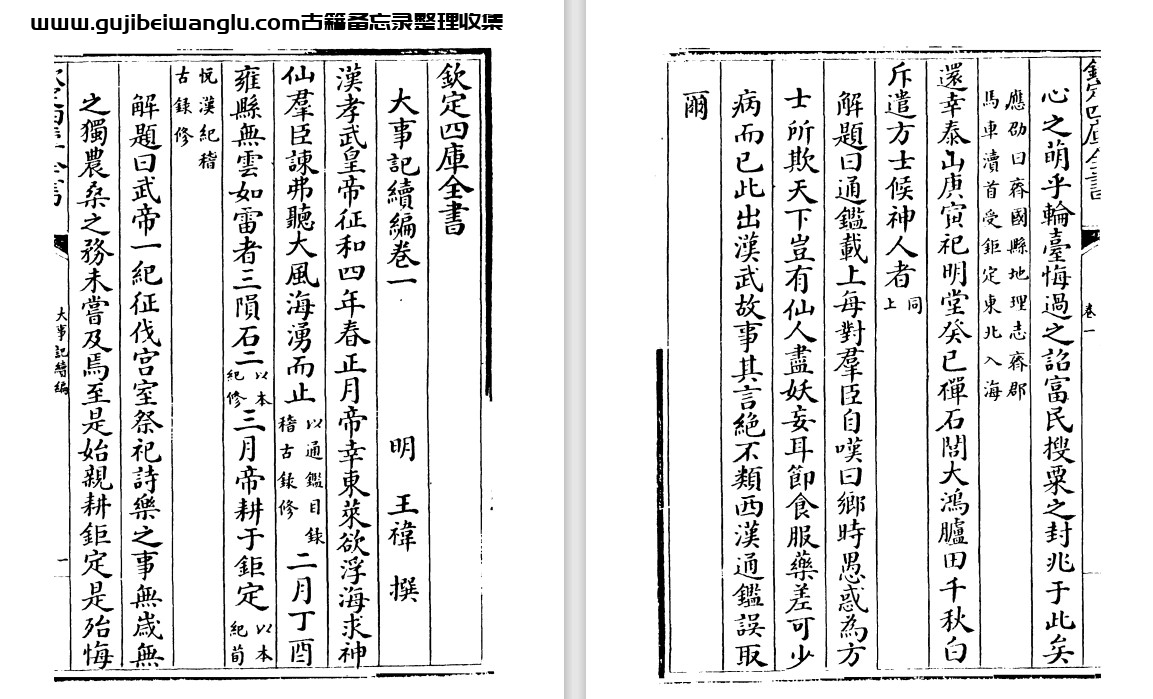 www.gujibeiwanglu.com古籍备忘录整理收集
欽定四庫全書
大事記續編卷一
明 王褘 撰
漢孝武皇帝征和四年春正月帝幸東萊欲浮海求神
仙羣臣諫弗聽大風海湧而止以通鑑目錄稽古錄修二月丁酉
雍縣無雲如雷者三隕石二以本紀修三月帝耕于鉅定以本紀荀
悅漢紀稽古錄修
解題曰武帝一紀征伐宫室祭祀詩樂之事無歲無
之獨農桑之務未嘗及焉至是始親耕鉅定是殆悔
欽定四庫全書
大事記續編
一
欽定四庫全書
卷一
心之萌乎輪臺悔過之詔富民搜粟之封兆于此矣
應劭曰齊國縣地理志齊郡
馬車瀆首受鉅定東北入海
還幸泰山庚寅祀明堂癸巳禪石閭大鴻臚田千秋白
斥遣方士候神人者同上
解題曰通鑑載上每對羣臣自嘆曰鄉時愚惑為方
士所欺天下豈有仙人盡妖妄耳節食服藥差可少
病而已此出漢武故事其言絕不類西漢通鑑誤取
爾